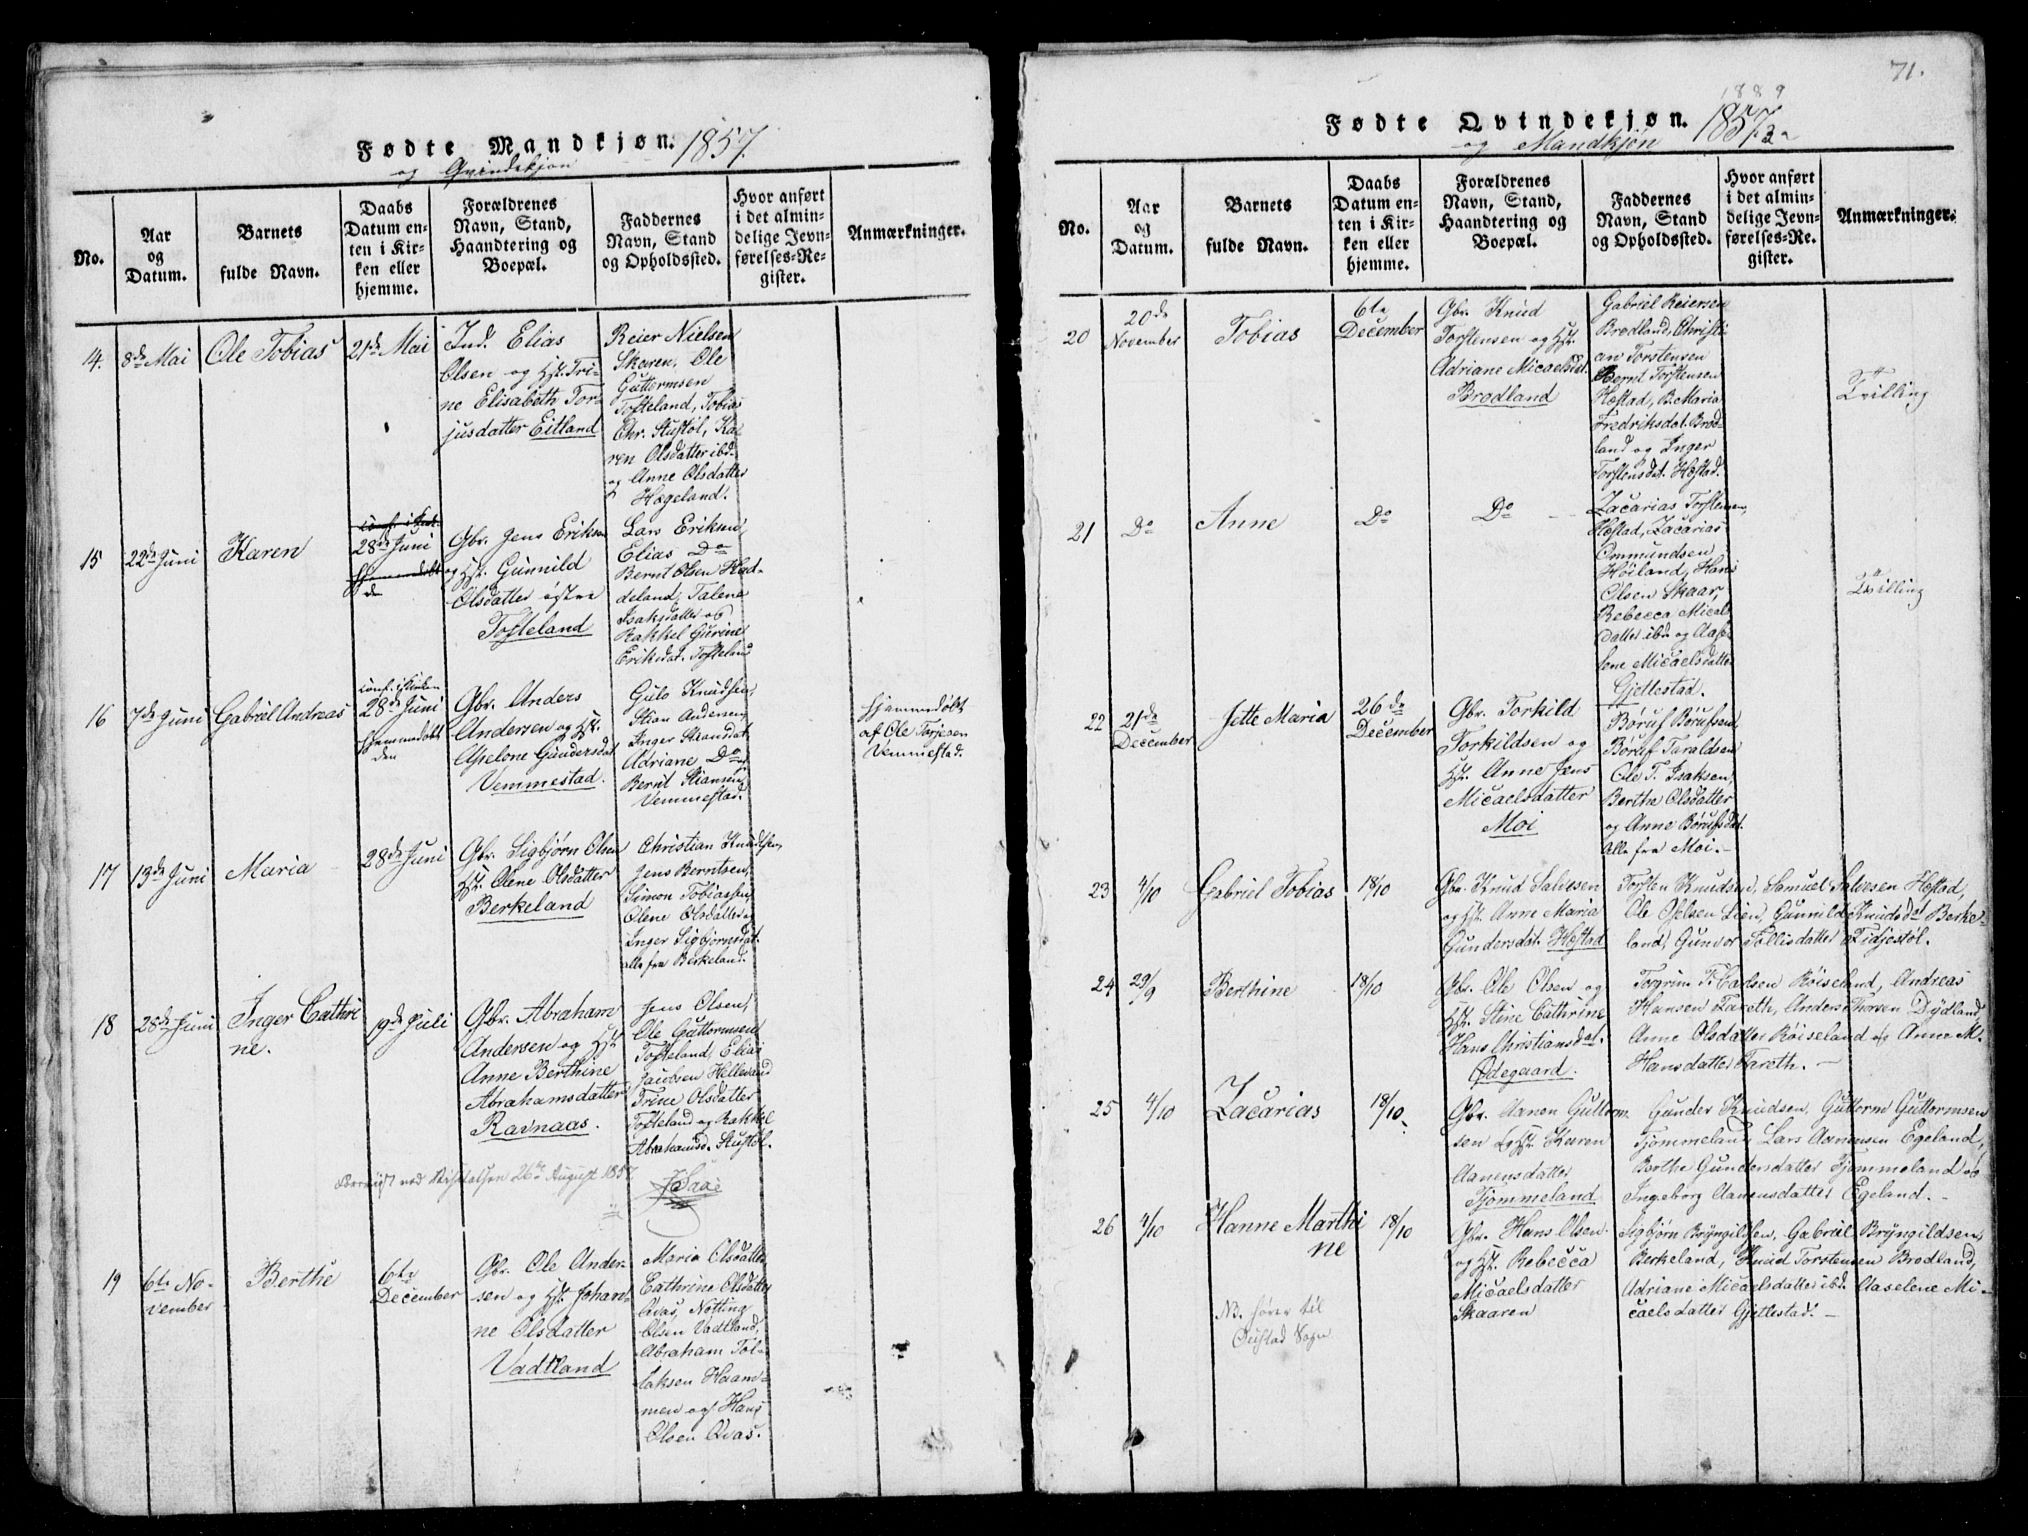 Fødte Mandkjøn. 1857.
og Qvindekjøn
No.
Aar
og
Datum.
Barnets
fulde Navn.
Daabs
Datum en-
ten i Kir-
ken eller
hjemme.
Forældrenes
Navn, Stand,
Haandtering og
Boepæl.
Faddernes
Navn, Stand
og Opholdssted.
Hvor anført
i det almin-
delige Jevn-
førelses-Re-
gister.
Anmærkninger.
14.
8de Mai
Ole Tobias
21de Mai
Ind. Elias
Olsen og Hst. Tri-
ne Elisabeth Tor-
jusdatter Eitland
Reier Nielsen
Skaren, Ole
Guttormsen
Tofteland, Tobias
Chr. Stustøl, Ka-
ren Olsdatter ibd.
og Anne Olsdatter
Hægeland.
15
22de Juni
Karen
28de Juni
Gbr. Jens Eriksen
og Hst. Gunnild
Olsdatter østre
Tofteland
Lars Eriksen,
Elias Do
Bernt Olsen Had-
deland, Talene
Isaksdatter og
Rakkel Gurine
Eriksdat. Tofteland
16
7de Juni
Gabriel Andreas
conf. i Kirken
28de Juni
Hjemmedøbt
den
Gbr. Anders
Andersen og Hst.
Aselone Gundersdat.
Vemmestad.
Gulo Knudsen,
Stian Andersen,
Inger Stiansdat.
Adriane Do
Bernt Stiansen,
Vemmestad.
Hjemmedøbt
af Ole Torjesen
Vemmestad.
17
13de Juni
Maria
28de Juni
Gbr. Sigbjørn Olsen
Hst. Olene Olsdatter
Berkeland
Christian Knudsen,
Jens Berntsen,
Simon Tobiassen
Olene Olsdatter og
Inger Sigbjørnsdat.
alle fra Berkeland.
18
28de Juni
Inger Cathri
ne.
19de Juli
Gbr. Abraham
Andersen og Hst.
Anne Berthine
Abrahamsdatter
Ravnaas.
Jens Olsen,
Ole Guttormsen
Tofteland, Elias
Jacobsen Hellevand
Trine Olsdatter
Tofteland og Rakkel
Abrahamsd. Stustøl.
ved Visitatsen 26de August 1857
19
6te No-
vember
Berthe
6te
December
Gbr. Ole Ander-
sen og Hst. Johan-
ne Olsdatter
Vadtland
Maria Olsdatter
Cathrine Olsdatter
Qvas, Notting
Olsen Vadtland,
Abraham Tol-
laksen Haam-
men og Hans
Olsen Qvas.
71.
1889
Fødte Qvindekjøn. 1857.
og Mandkjøn
No.
Aar
og
Datum.
Barnets
fulde Navn.
Daabs
Datum en-
ten i Kir-
ken eller
hjemme.
Forældrenes
Navn, Stand,
Haandtering og
Boepæl.
Faddernes
Navn, Stand
og Opholdssted.
Hvor anført
i det almin-
delige Jevn-
førelses-Re-
gister.
Anmærkninger.
20
20de
November
Tobias
6te
December
Gbr. Knud
Torstensen og Hst.
Adriane Micaelsdat.
Brødland
Gabriel Reiersen
Brødland, Christi-
an Torstensen
Bernt Torstensen
Hæstad, B. Maria
Fredriksdat. Brød-
land og Inger
Torstensdat. Hæstad.
Tvilling
21
Do
Anne
Do
Do
Zacarias Torstensen,
Hæstad, Zacarias
Ommundsen
Høiland, Hans
Olsen Skaar,
Rebecca Micaels
datter ibd. og Aase-
lene Micaelsdatter
Gjettestad.
Tvilling
22
21de
December
Jette Maria
26de
December
Gbr. Torkild
Torkildsen og
Hst. Anne Jens
Micaelsdatter
Moi
Børuf Børufsen
Børuf Taraldsen
Ole T. Isaksen,
Berthe Olsdatter
og Anne Børufsdat.
Alle fra Moi.
23
4/10
Gabriel Tobias
18/10
Gbr. Knud Salvesen
og Hst. Anne Maria
Gundersdat. Hæstad
Torsten Knudsen, Samuel Salvesen Hæstad,
Ole Ofelsen Lien, Gunnild Knudsdt Berke-
land, Gunvor Tollisdatter Fidjestøl.
24
29/9
Berthine
18/10
Gbr. Ole Olsen og
Hst. Stine Cathrine
Hans Christiansdat.
Ødegaard.
Torgrim T. Carlsen Røiseland, Andreas
Hansen Fareth, Anders Thorsen Dydland,
Anne Olsdatter Røiseland og Anne M.
Hansdatter Fareth.
25
4/10
Zacarias
18/10
Gbr. Aanon Guttorm
sen og Hst. Karen
Aanensdatter
Tjømmeland
Gunder Knudsen, Guttorm Guttormsen
Tjømmeland, Lars Aanensen Egeland,
Berthe Gundersdatter Tjømmeland og
Ingeborg Aanensdatter Egeland.
26
4/10
Hanne Marthi
ne
18/10
Gbr. Hans Olsen
og Hst. Rebecca
Micaelsdatter
Skaaren
Sigbjørn Bryngildsen, Gabriel Bryngildsen,
Berkeland, Knud Torstensen Brødland,
Adriane Micaelsdatter ibd. Aaselene Mi-
caelsdatter Gjettestad.
NB. hører til
Sogn